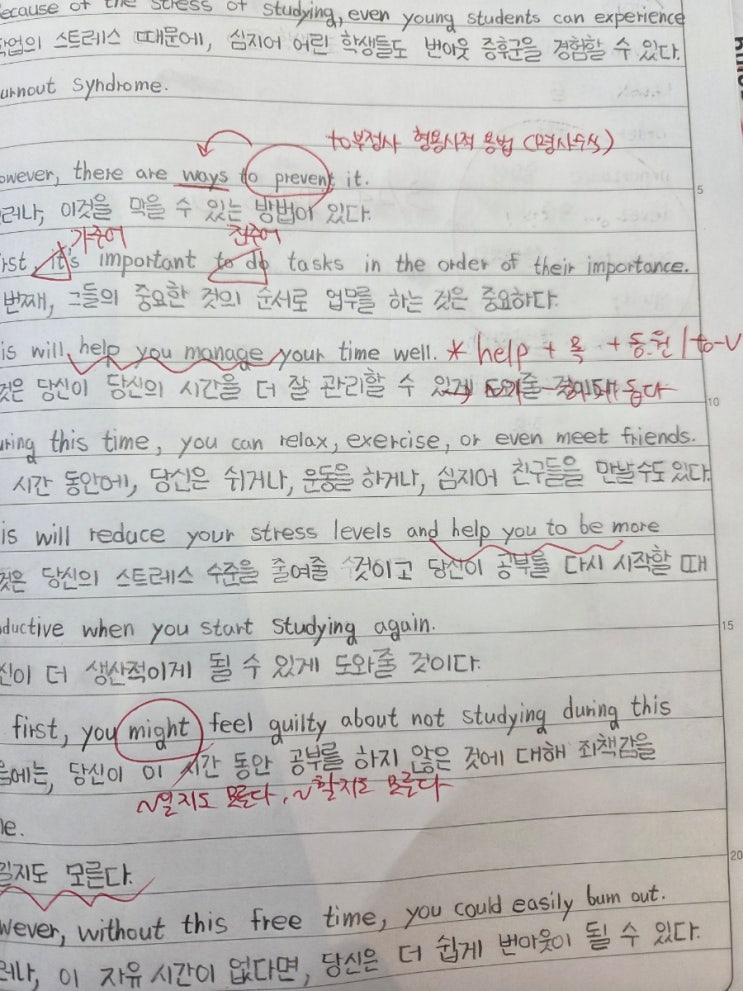 ecause of the stress of studying, even young students can experience
학업의 스트레스 때문에, 심지어 어린 학생들도 번아웃 증후군을 경험할 수 있다.
urnout syndrome.
to부정사 형용사적 용법 (명사수식)
owever, there are ways to prevent it.
5
러나, 이것을 막을 수 있는 방법이 있다.
가주어 진주어
rst it's important to do tasks in the order of their importance.
번째, 그들의 중요한 것의 순서로 업무를 하는 것은 중요하다.
is will help you manage your time well. * help + 목 + 동.원 / to-v
것은 당신이 당신의 시간을 더 잘 관리할 수 있게 돕다
10
uring this time, you can relax, exercise, or even meet friends.
시간 동안에, 당신은 쉬거나, 운동을 하거나, 심지어 친구들을 만날 수도 있다.
is will reduce your stress levels and help you to be more
것은 당신의 스트레스 수준을 줄여줄 것이고 당신이 공부를 다시 시작할 때
ductive when you start studying again.
15
신이 더 생산적이게 될 수 있게 도와줄 것이다.
first, you might feel guilty about not studying during this
음에는, 당신이 이 시간 동안 공부를 하지 않은 것에 대해 죄책감을
~일지도 모른다, ~할지도 모른다
e.
낄지도 모른다.
20
wever, without this free time, you could easily burn out.
러나, 이 자유 시간이 없다면, 당신은 더 쉽게 번아웃이 될 수 있다.